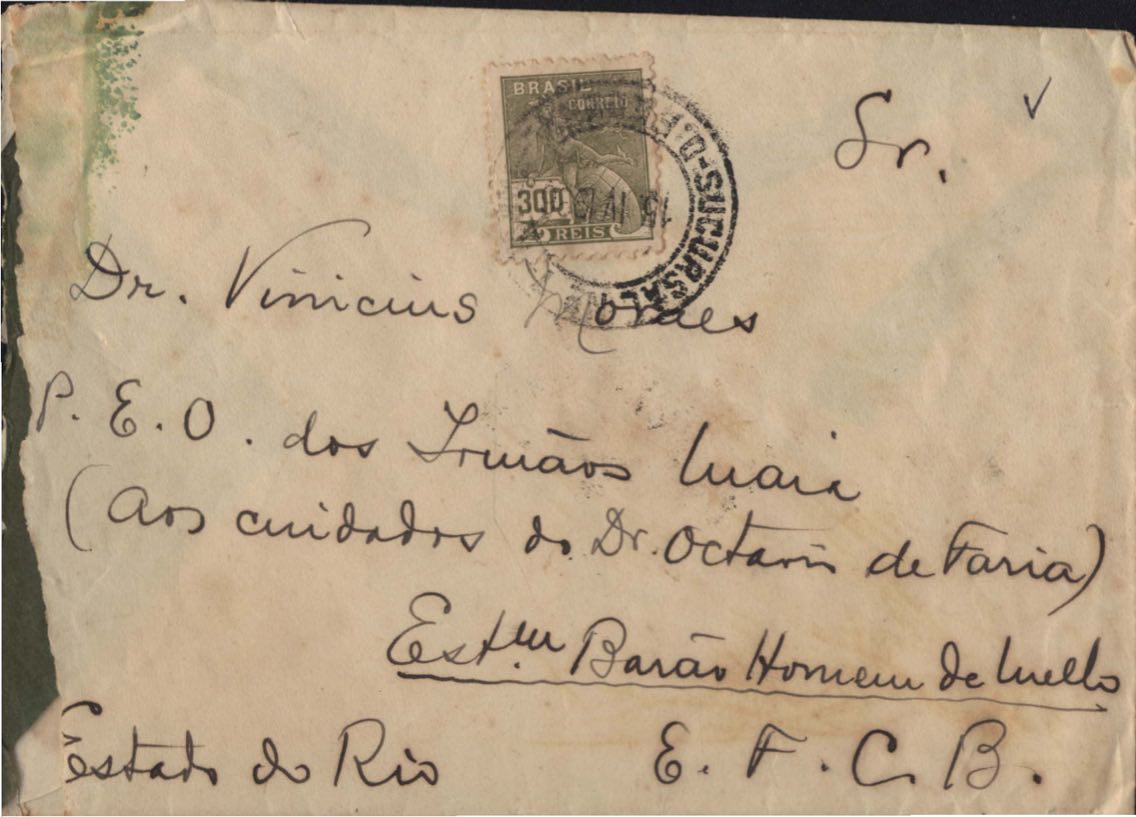 BRASIL
CORREIO
300
REIS
SUCURSAL
Sr.
Dr. Vinicius Moraes
P. E. O. dos Irmãos Maia
(Aos cuidados do Dr. Octavio de Faria)
Est. Barão Homem de Mello
Estado do Rio E. F. C. B.